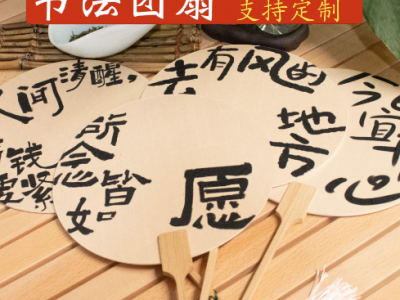 书法团扇 支持定制
人间清醒,
搞钱要紧
去有风的
地方
所念皆如
愿